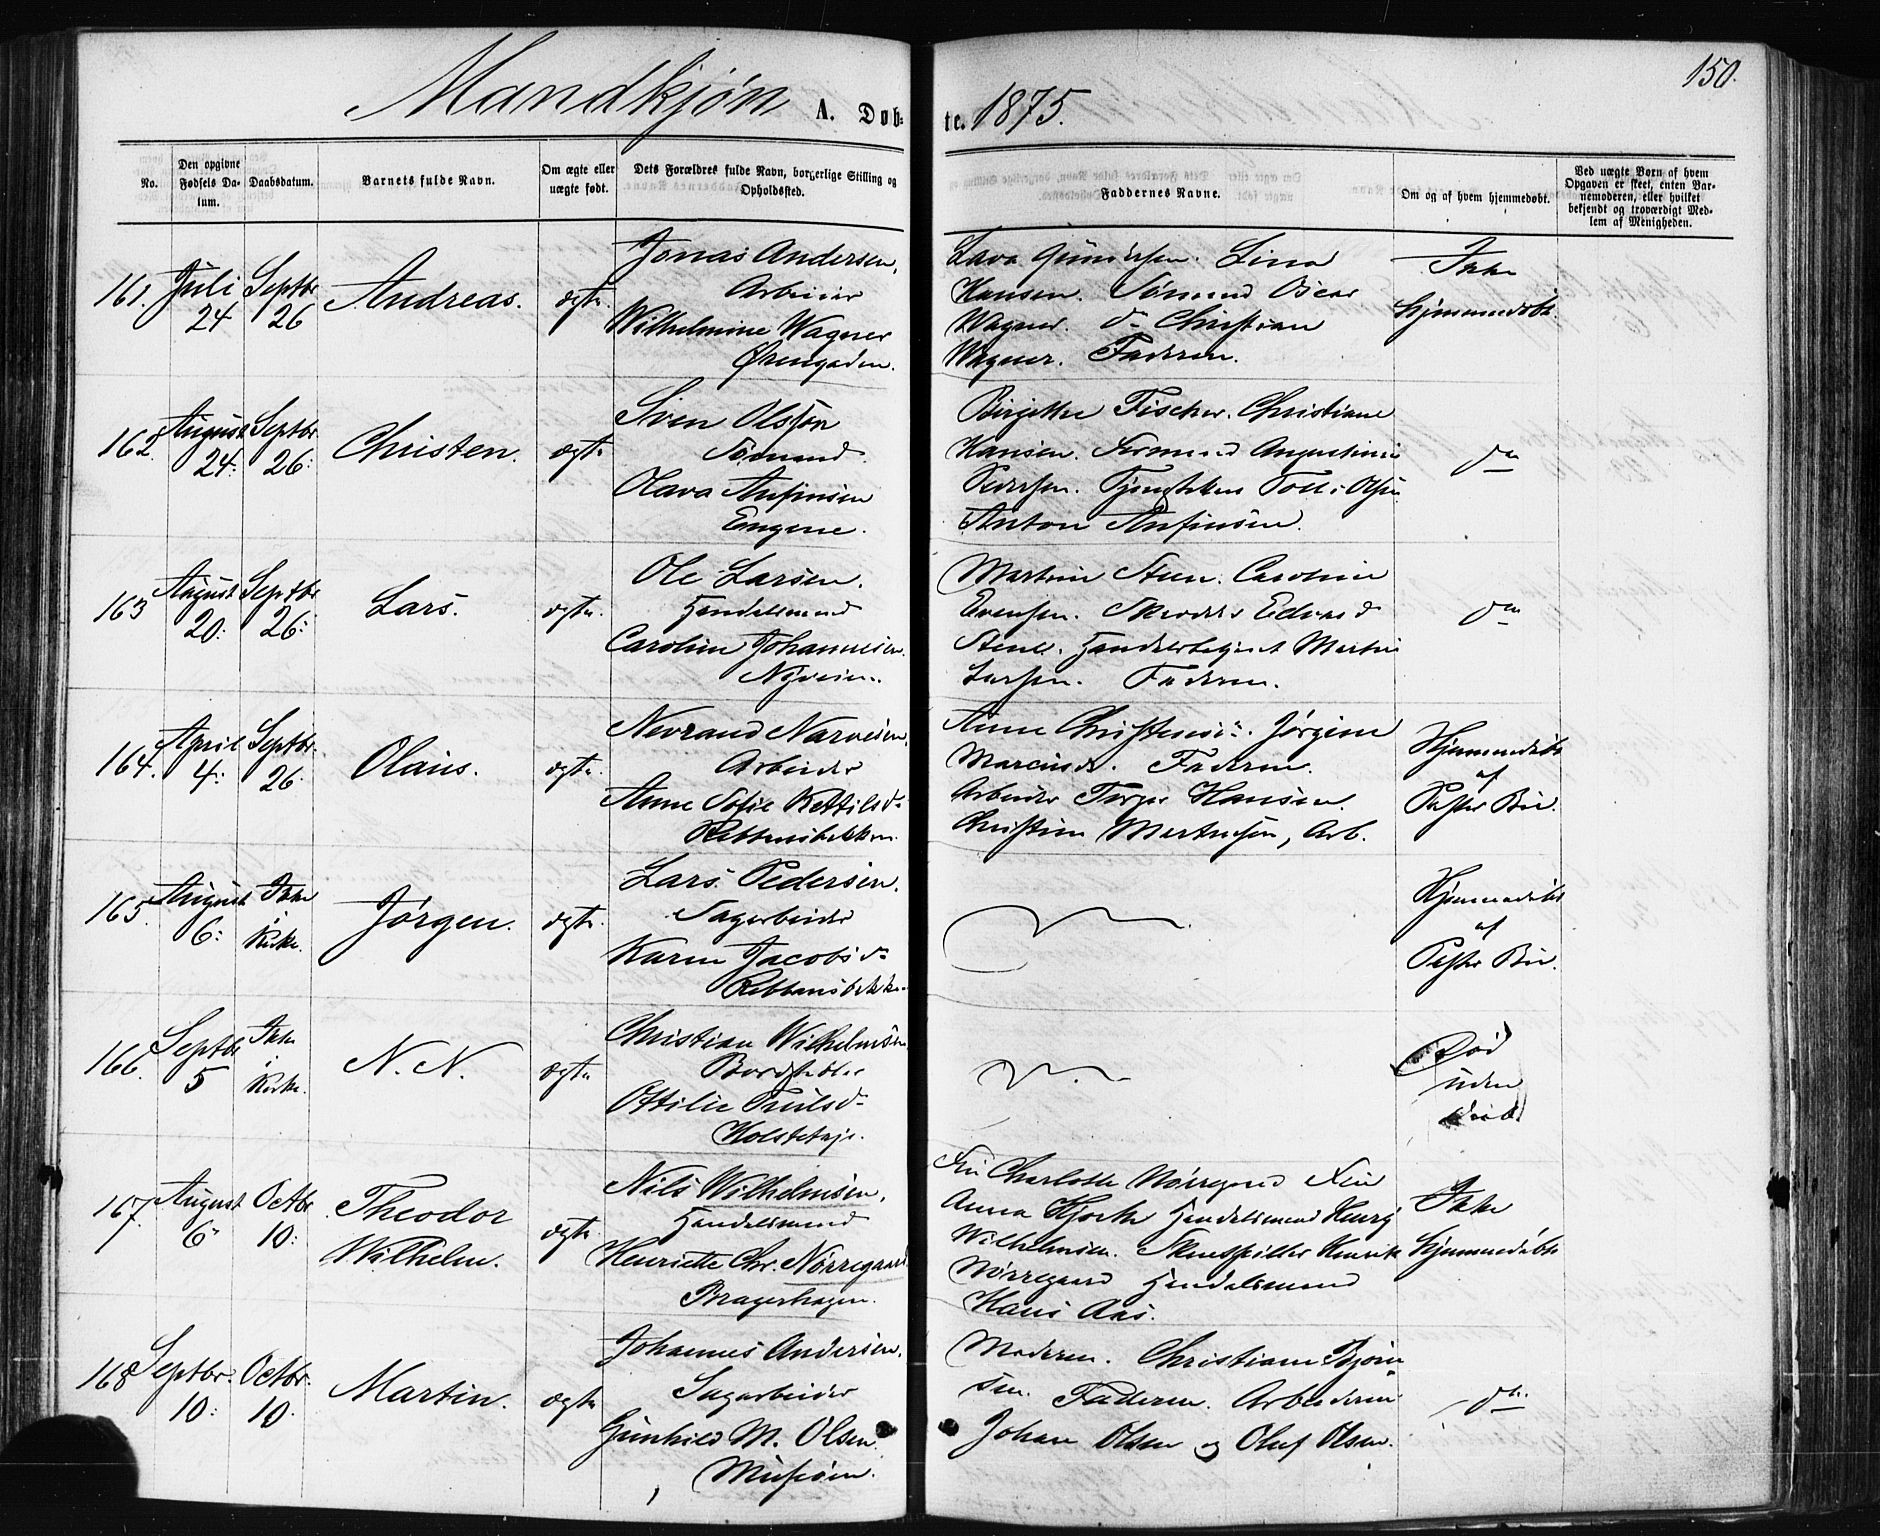 150.
Mandkjøn A. Døb-
te. 1875.
No.
Den opgivne Fødsels Da-
tum.
Daabsdatum.
Barnets fulde Navn.
Om ægte eller
uægte født.
Dets Forældres fulde Navn, borgerlige Stilling og
Opholdssted.
Faddernes Navne.
Om og af hvem hjemmedøbt.
Ved uægte Børn af hvem
Opgaven er skeet, enten Bar-
nemoderen, eller hvilket
bekjendt og troværdigt Med-
lem af Menigheden.
161. Juli 24 Septbr 26 Andreas. ægte.
Jonas Andersen,
Arbeider
Wilhelmine Wagner
Lava Lina
Hansen. Sømand Oscar
Wagner. do Christian
Wagner. Faderen.
Ikke
hjemmedøbt.
162. August 24: Septbr. 26: Christen. ægte
Sven Olsson
Sømand.
Olava Anfinsen
Engene.
Birgithe Fischer. Christiane
Hansen. Augustinus
Pedersen. Olsen
Anton Anfinsen.
do
163 August 20: Septbr. 26: Lars. ægte.
Ole Larsen.
Handelsmand
Caroline Johannesen.
Nyveien.
Martine Steen. Caroline
Evensen. Skræder Edvard
Steen. Handelsbetjent Martin
Larsen. Faderen.
do
164. April 4: Septbr. 26. Olaus. ægte.
Nevrand Narvesen,
Arbeider
Anne Sofie Kettilsdr
Anne Christens. Jørgine
Marcusdr. Faderen.
Arbeider Hansen.
Christian Martinsen, Arb.
Hjemmedøbt
af
165. August 6: Ikke i Kirke. Jørgen. ægte.
Lars Pedersen.
Sagarbeider
Karen Jacobsdr
Hjemmedøbt
af
166. Septbr 5 Ikke i Kirke. N. N. ægte
Christian Wilhelmsen
Ottilie
Død
uden
Daab
167. August 6 Octbr 10: Theodor
Wilhelm. ægte.
Nils Wilhelmsen,
Handelsmand
Henriette Chr. Nørregaard
Bragerhagen.
Charlotte Nørregaard
Anna Handelsmand Henry
Wilhelmsen. Skuespiller Henrik
Nørregaard Handelsmand
Hans Aas.
Ikke
hjemmedøbt
168 Septbr. 10: Octbr. 10. Martin. ægte
Johannes Andersen,
Sagarbeider
Gunhild M. Olsen
Moderen. Christiane Bjørn-
sen. Faderen. Arbeiderne
Johan Olsen og Oluf Olsen.
do